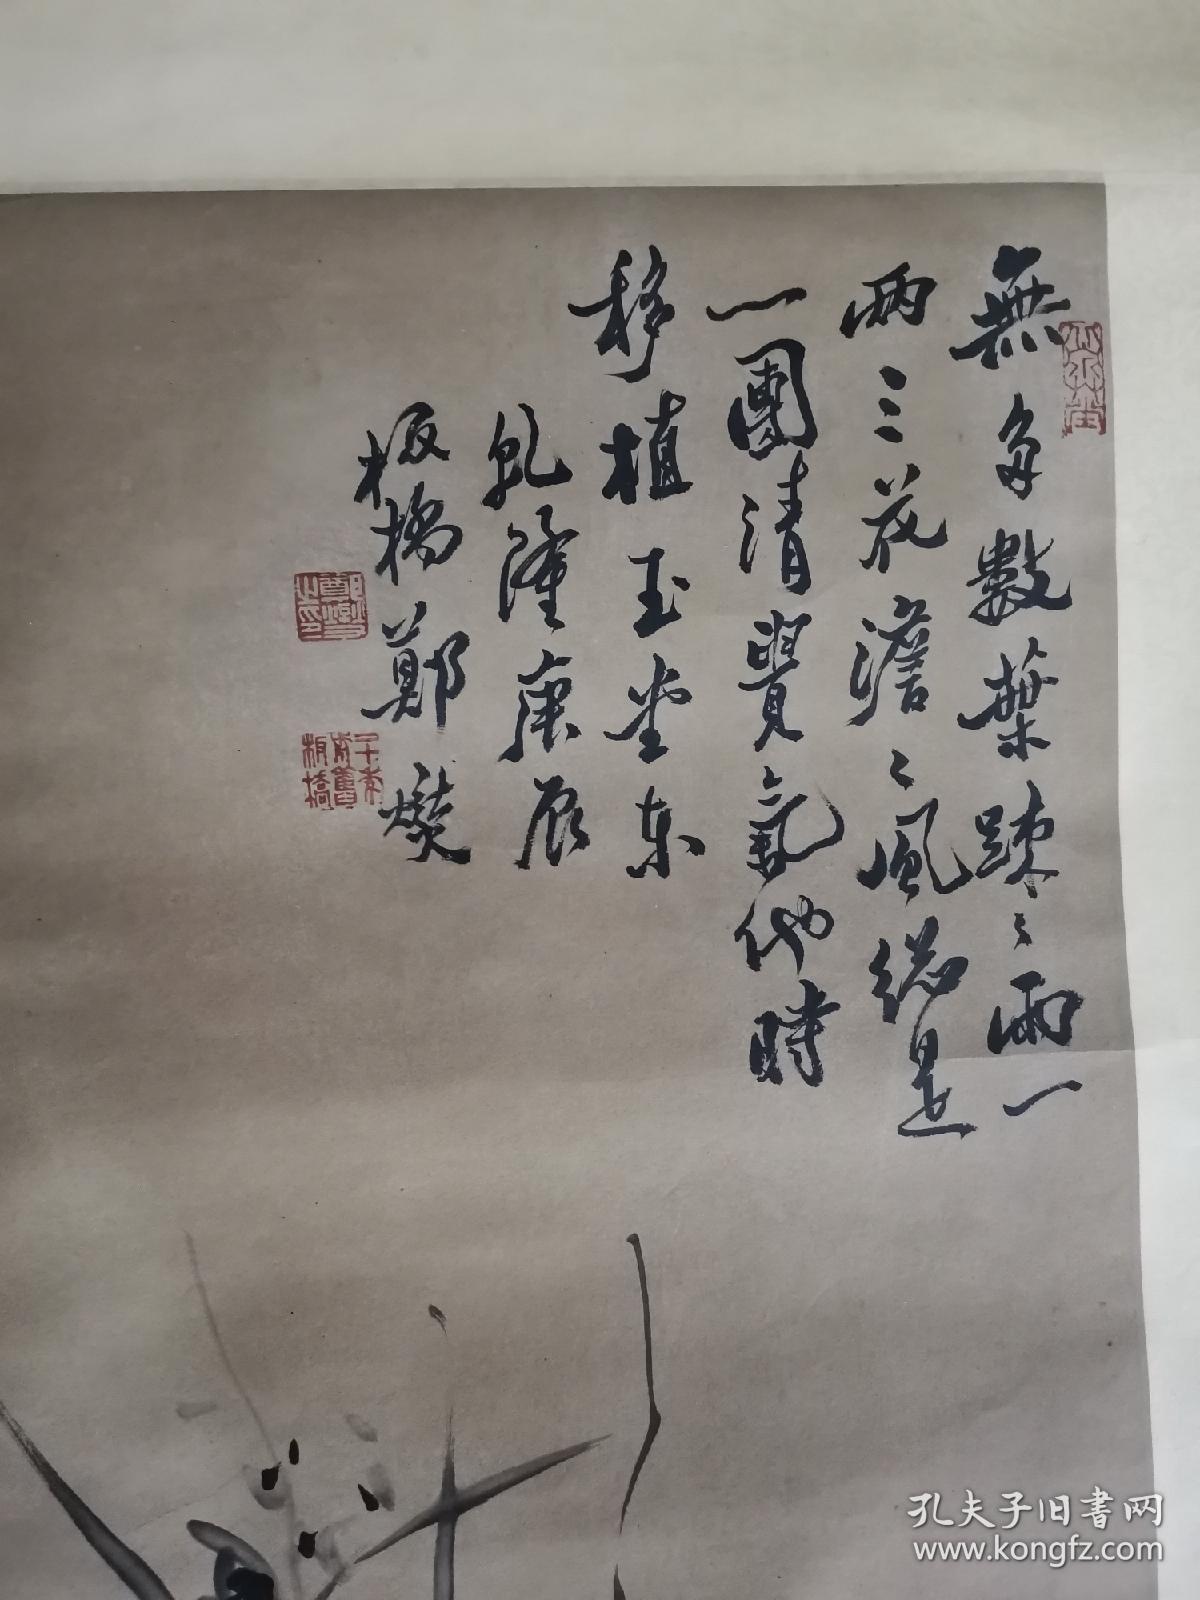 無多數葉踈〻雨一
兩三花澹〻風緫是
一團清貴氣他時
移植玉堂東
乾隆庚辰
板橋鄭燮
鄭燮之印
孔夫子旧书网
www.kongfz.com